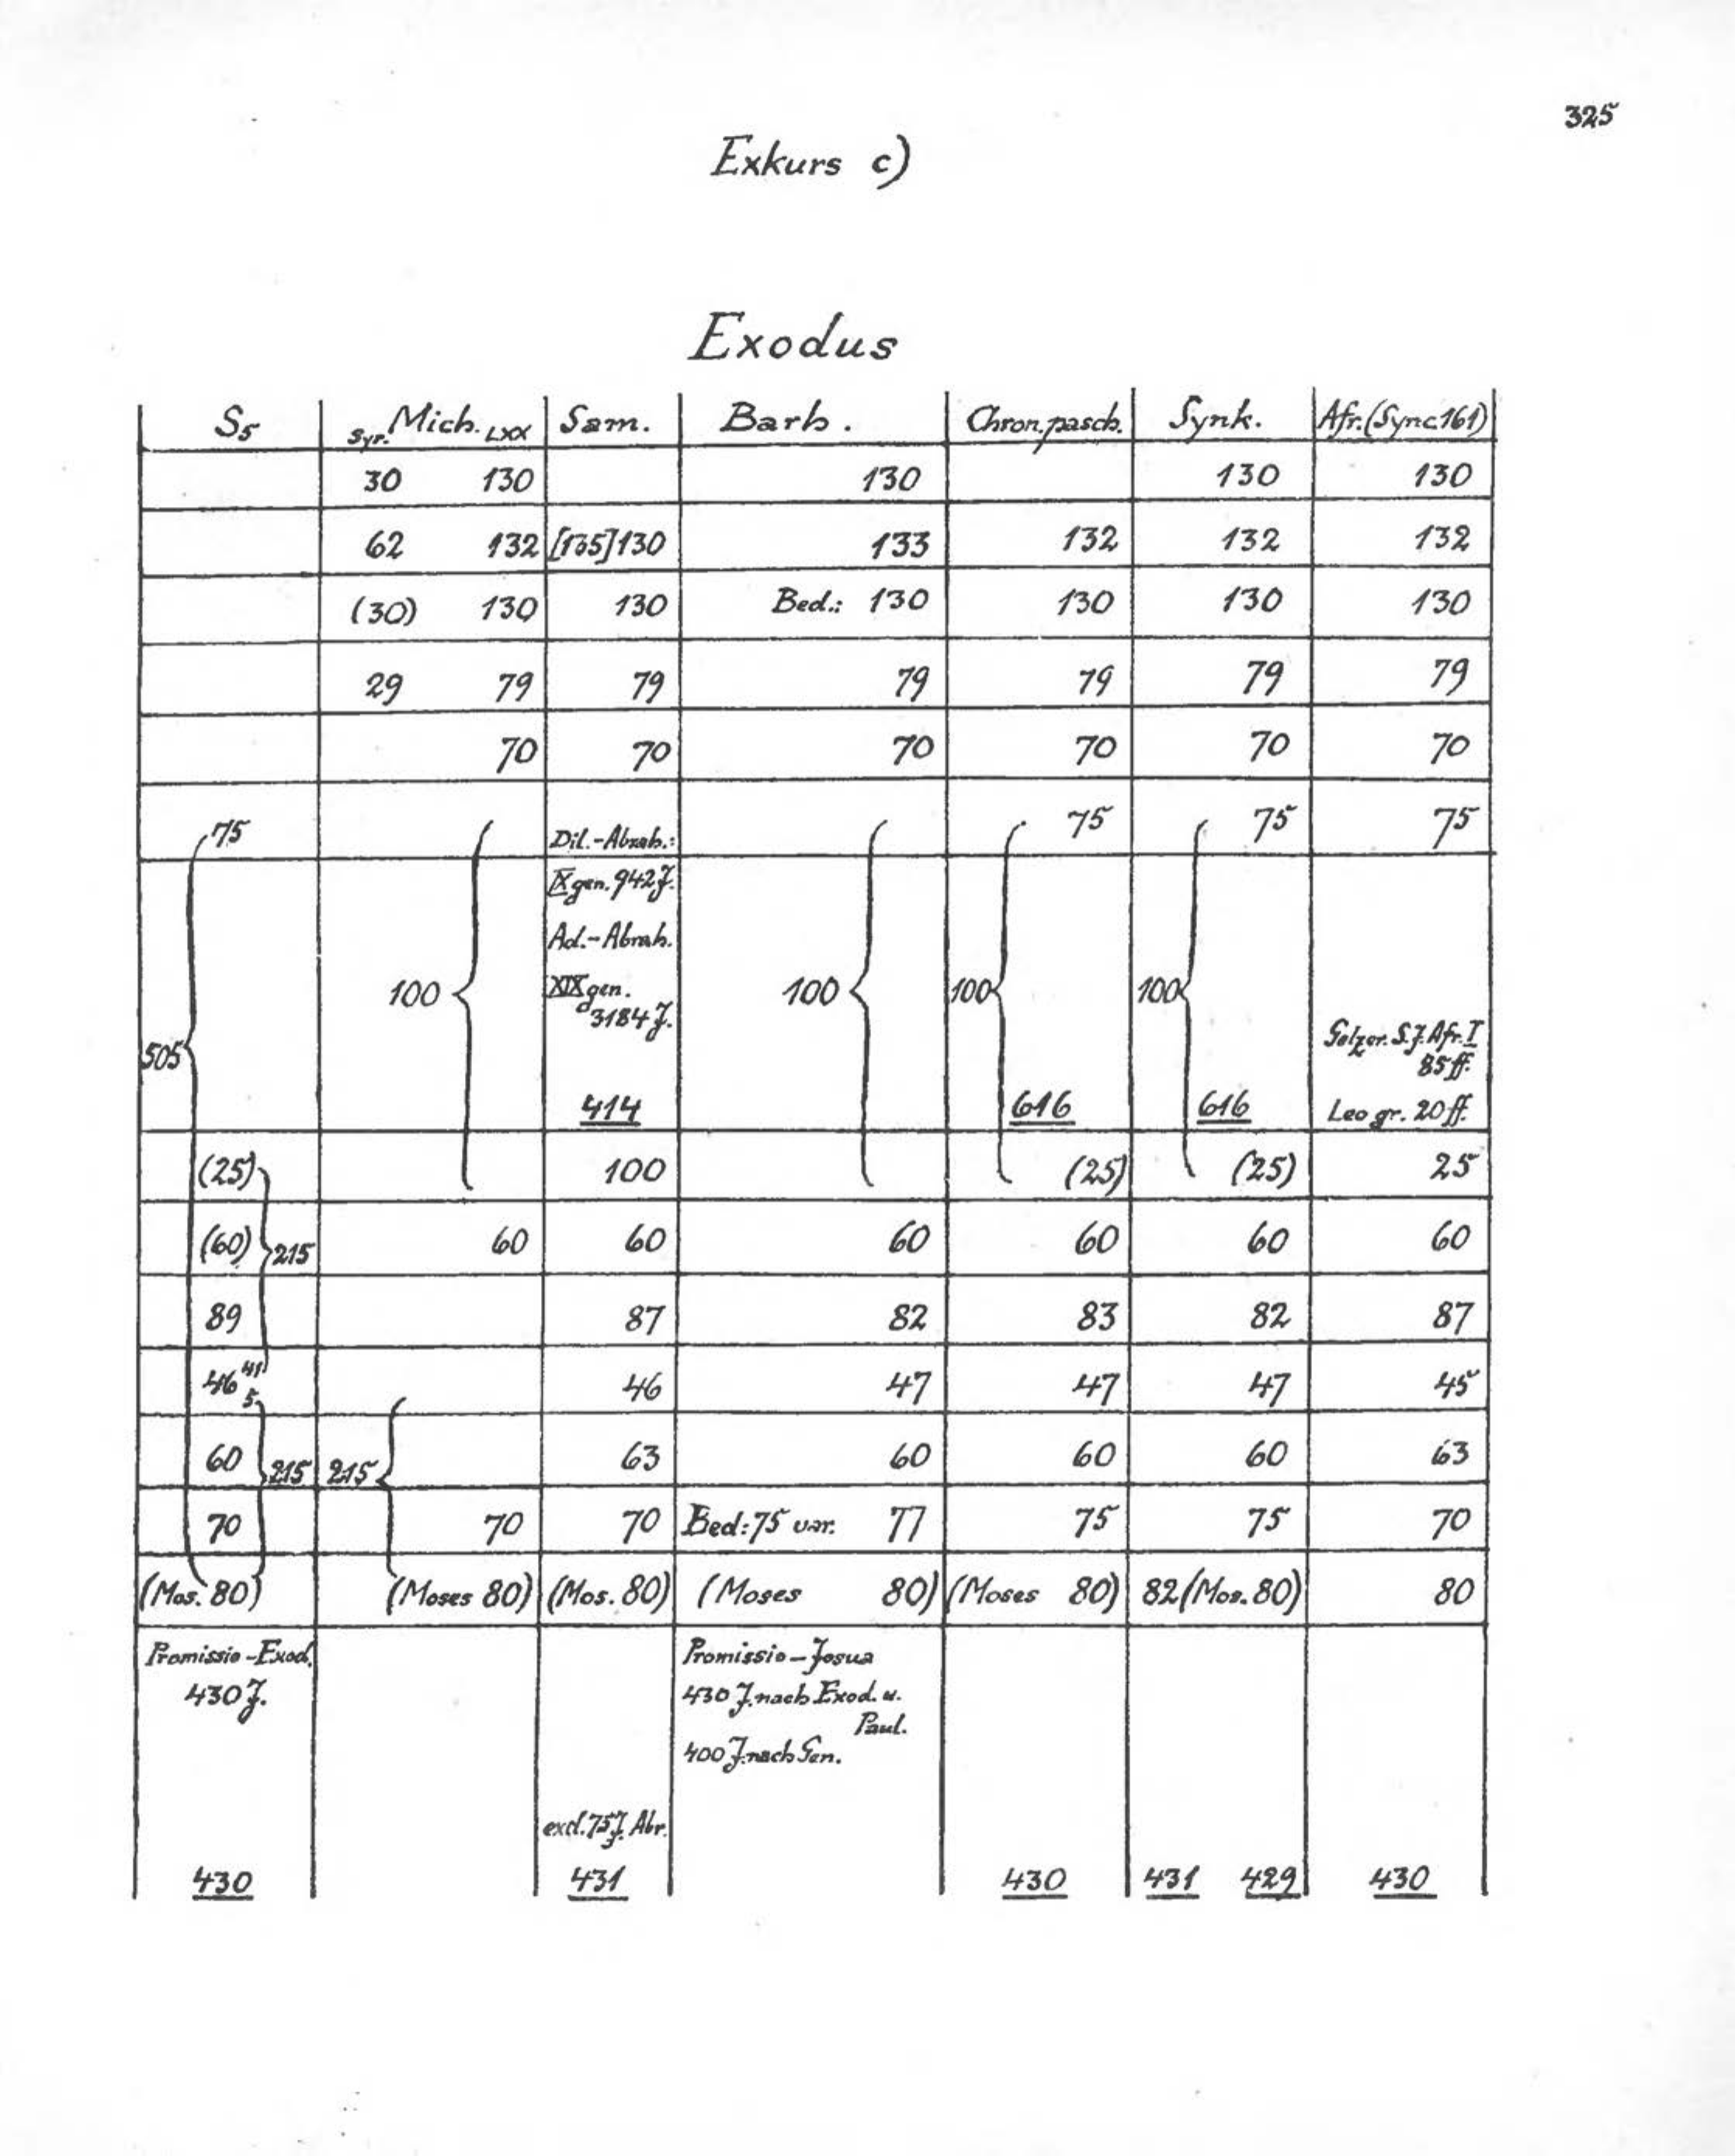 325
Exkurs c)
Exodus
S5 Syr. Mich. LXX Sam. Barh. Chron. pasch. Synk. Afr. (Sync. 161)
30 130 130 130 130
62 132 [135] 130 133 132 132 132
(30) 130 130 Bed.: 130 130 130 130
29 79 79 79 79 79 79
70 70 70 70 70 70
75 Dil.-Abrah.: 75 75 75
IX gen. 942 J.
Ad.-Abrah.
100 XIX gen. 100 100 100
3184 J.
505 Gelzer. S.J. Afr. I
85 ff.
414 616 616 Leo gr. 20 ff.
(25) 100 (25) (25) 25
(60) 215 60 60 60 60 60 60
89 87 82 83 82 87
46 41 5 46 47 47 47 45
60 215 215 63 60 60 60 63
70 70 70 Bed: 75 var. 77 75 75 70
(Mos. 80) (Moses 80) (Mos. 80) (Moses 80) (Moses 80) 82 (Mos. 80) 80
Promissio-Exod. Promissio-Josua
430 J. 430 J. nach Exod. u.
Paul.
400 J. nach Gen.
excl. 75 J. Abr.
430 431 430 431 429 430